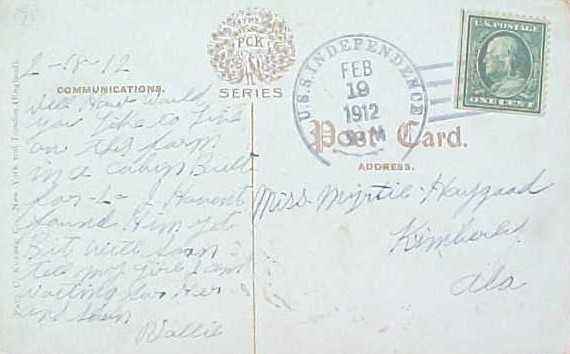 2-18-12
COMMUNICATIONS.
Well How Would
you like to live
on this farm
in a cabin Built
for-2- I Havent
found Him yet
But will soon
tell my girl I am
Waiting for Her
and soon
Wallie
THE
PCK
SERIES
U.S.S. INDEPENDENCE
FEB
19
1912
M
U.S. POSTAGE
ONE CENT
Post Card.
ADDRESS.
Miss Myrtle Haygood
Kimberly
Ala
New York and London